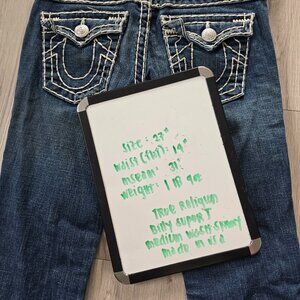 size: 27"
waist (flat): 14"
inseam: 31"
weight: 1 lb 9oz
True Religion
Billy Super T
medium wash-spray
made in USA